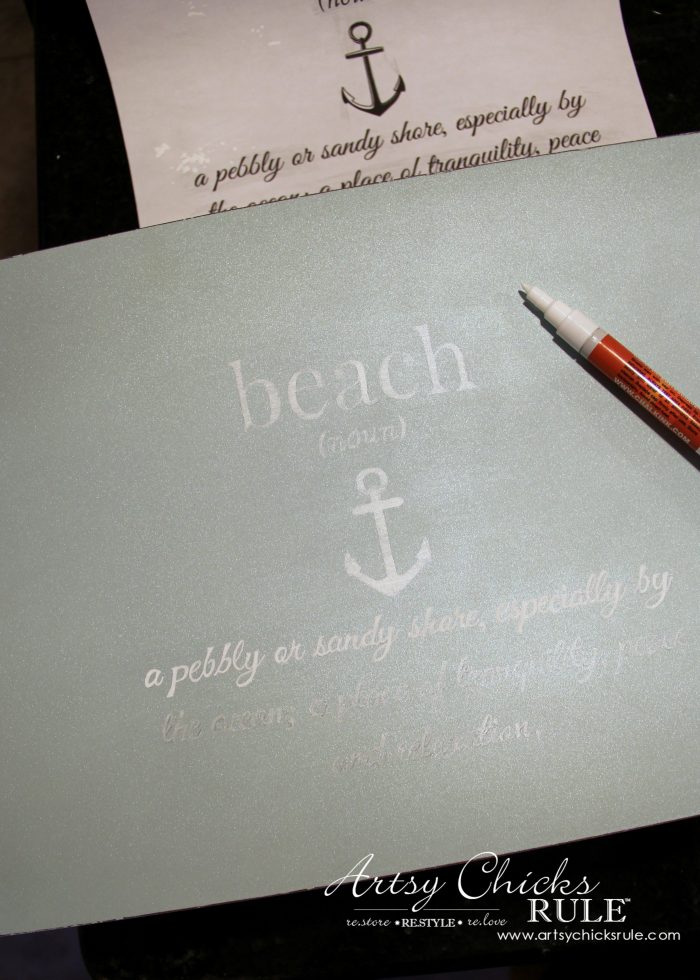 a pebbly or sandy shore, especially by
the ocean; a place of tranquility, peace
beach
(noun)
a pebbly or sandy shore, especially by
the ocean; a place of tranquility, peace
and relaxation.
WWW.CHALKINK.COM
Artsy Chicks
RULE™
re.store • RESTYLE • re.love
www.artsychicksrule.com